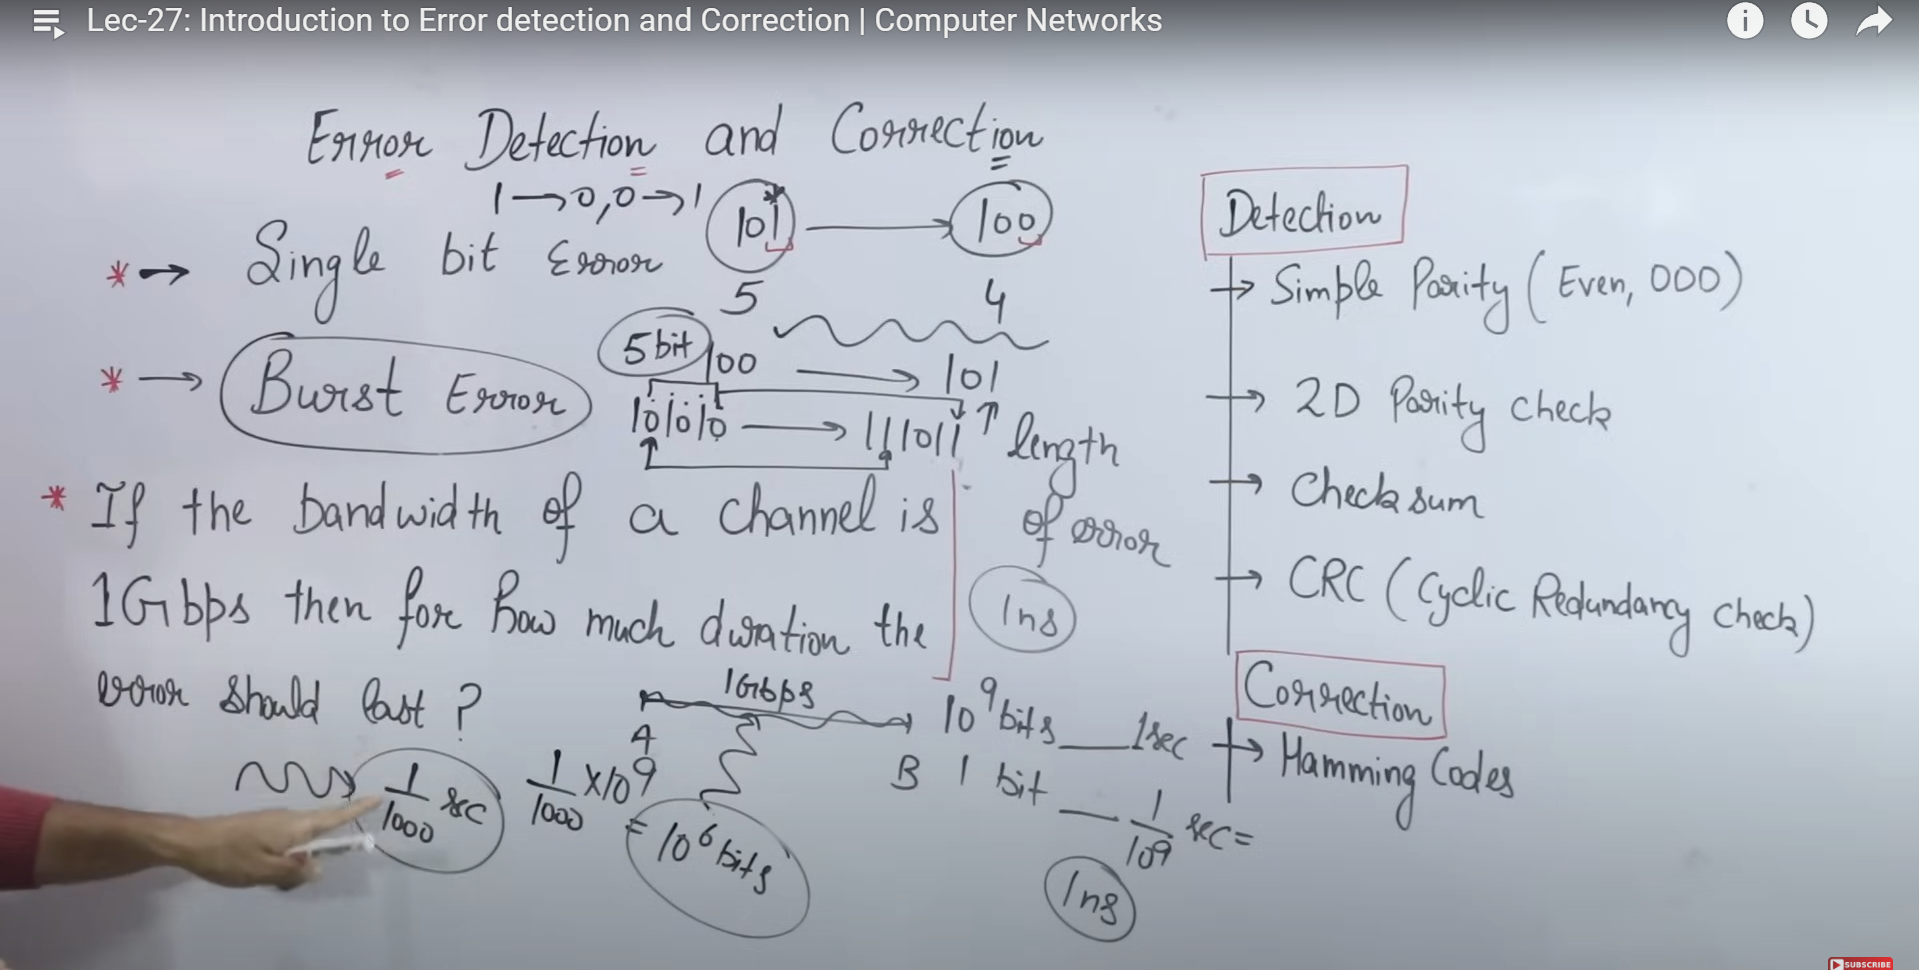 Lec-27: Introduction to Error detection and Correction | Computer Networks
Error Detection and Correction
1→0, 0→1
101 → 100
* → Single bit Error
5 4
5bit
100 → 101
* → Burst Error
101010 → 111011
length
of error
* If the bandwidth of a channel is
1Gbps then for how much duration the
error should last?
1ns
1Gbps
A
B
10⁹ bits __ 1sec
1 bit __ 1/10⁹ sec =
1ns
1/1000 sec
1/1000 × 10⁹
= 10⁶ bits
Detection
→ Simple Parity (Even, ODD)
→ 2D Parity check
→ Checksum
→ CRC (Cyclic Redundancy Check)
Correction
→ Hamming Codes
SUBSCRIBE